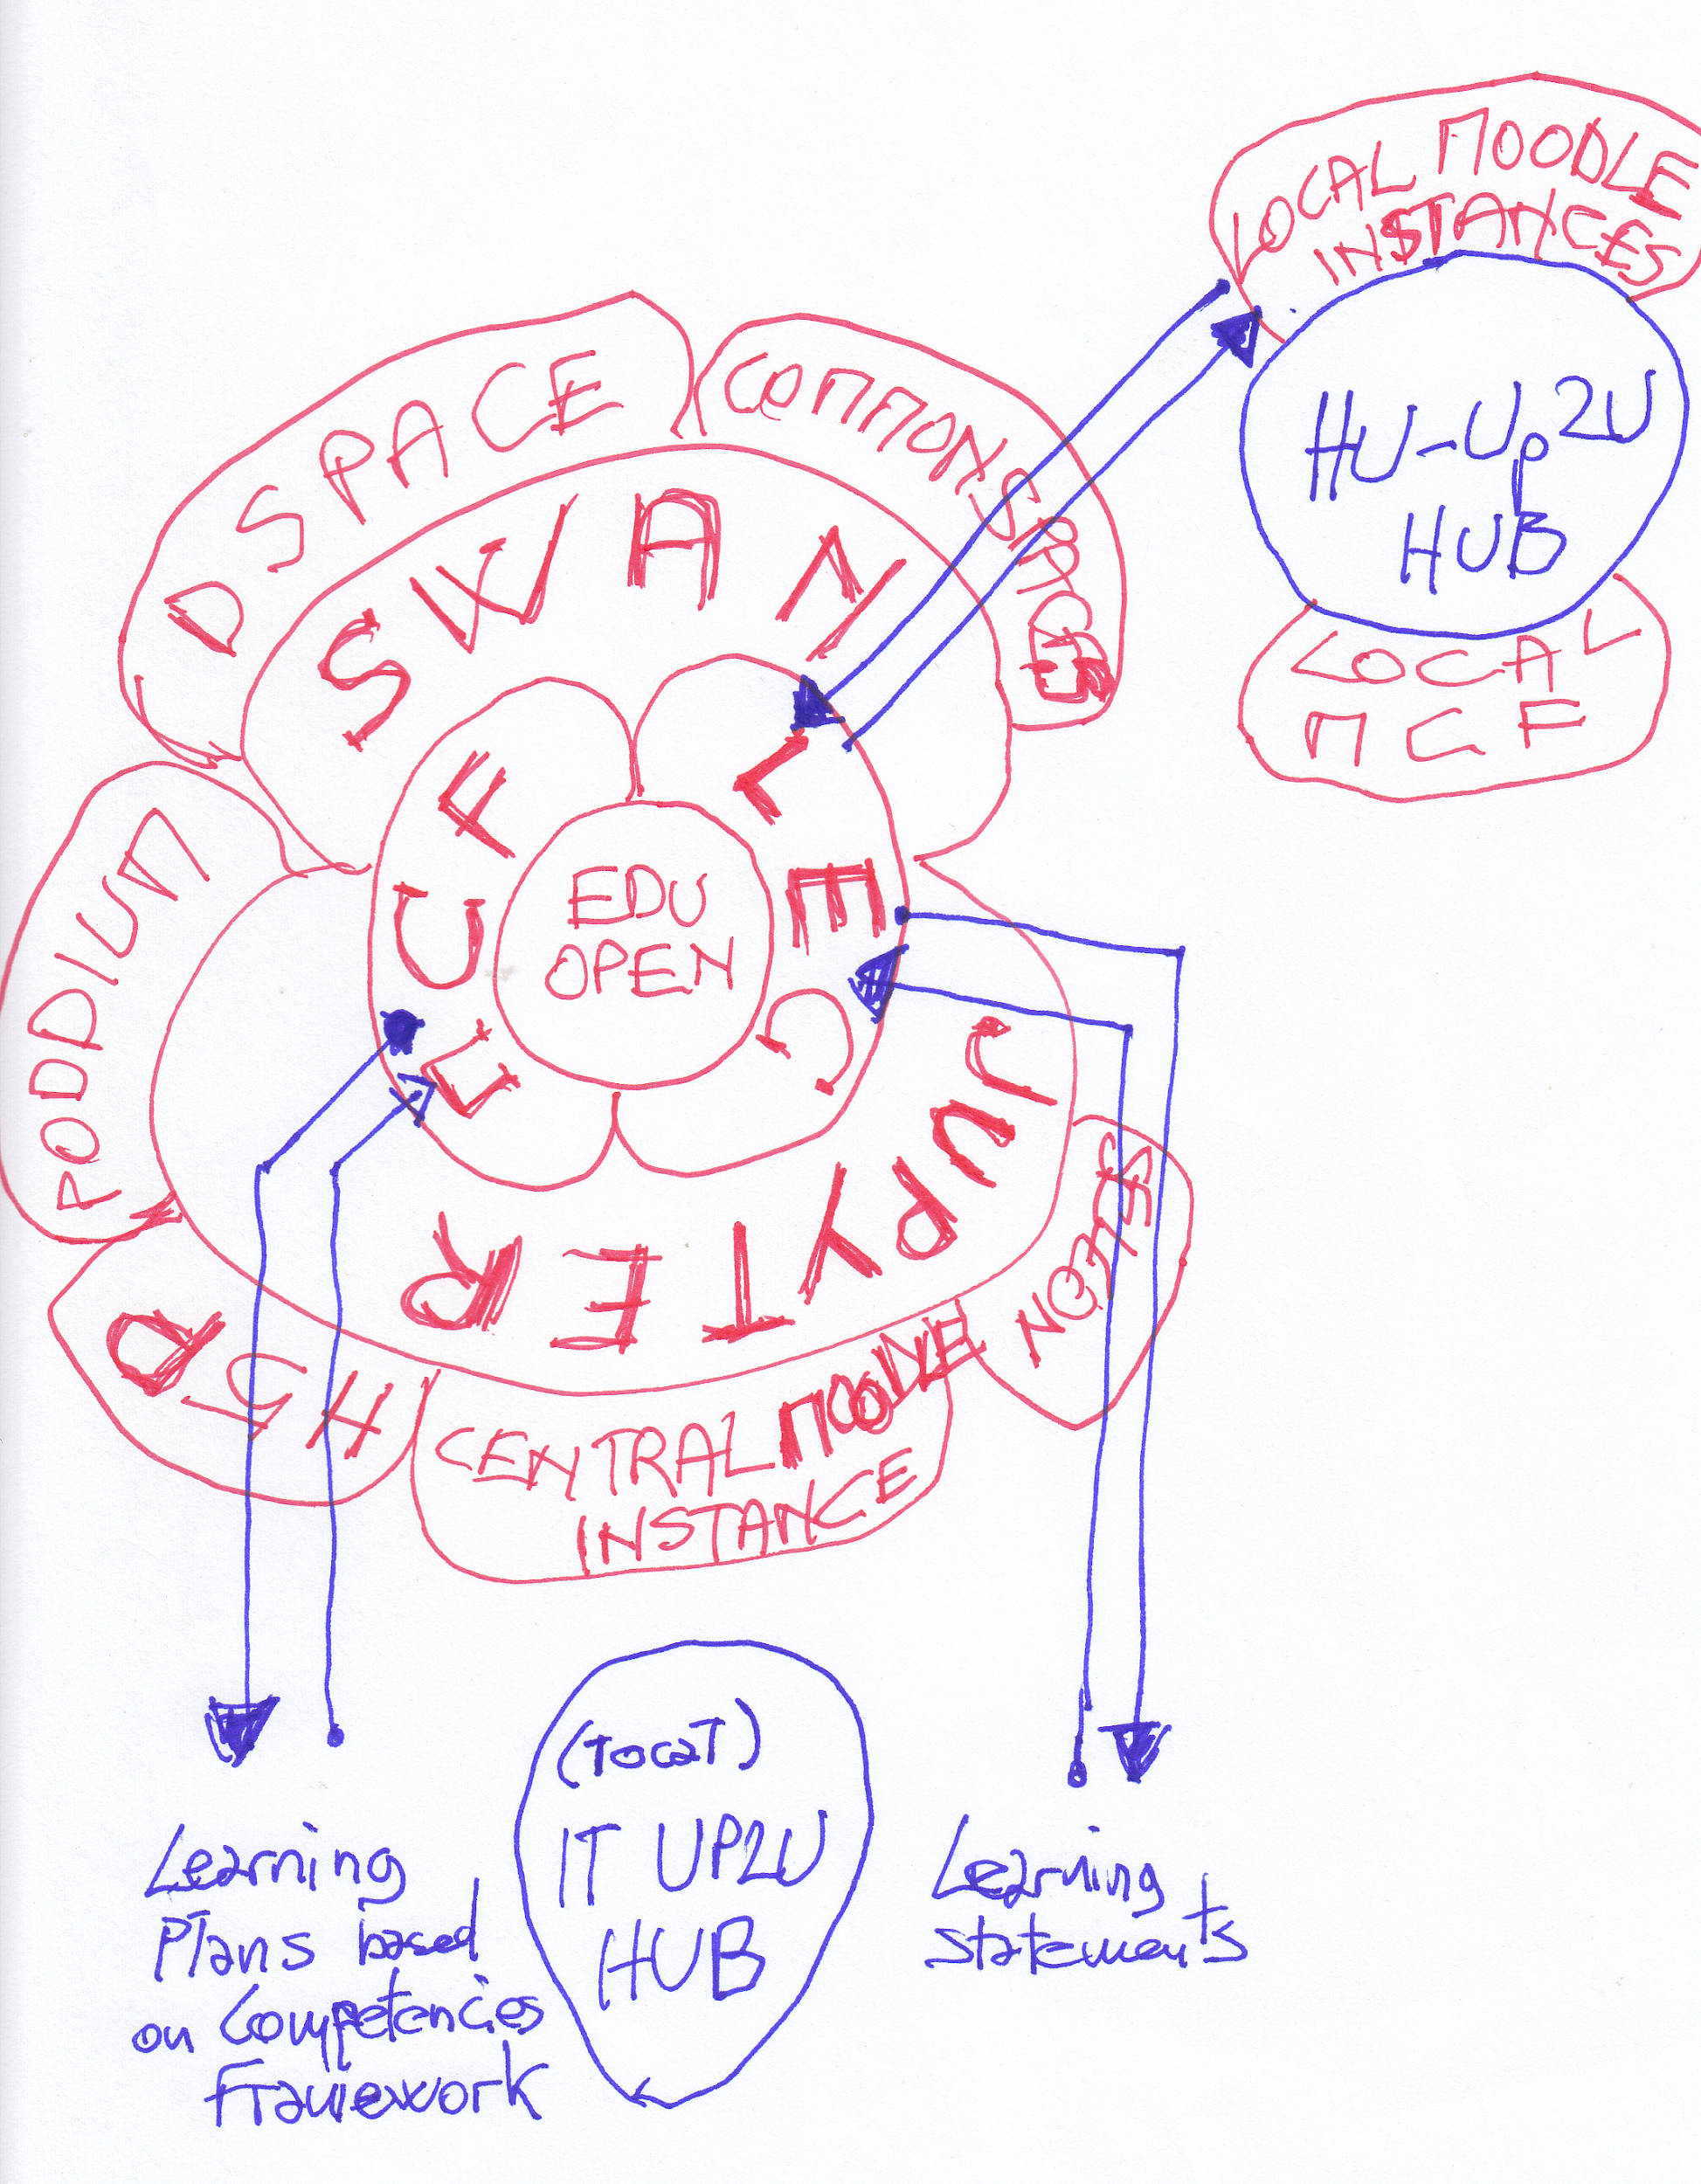 LOCAL MOODLE
INSTANCES
HU-Up2U
HUB
LOCAL
MCF
DSPACE
COMMONSPACES
SWAN
MCF
LEC
EDU
OPEN
PODDIUM
JUPYTER
NOTES
H5P
CENTRAL MOODLE
INSTANCE
(local)
IT UP2U
HUB
Learning
Plans based
on Competencies
Framework
Learning
statements